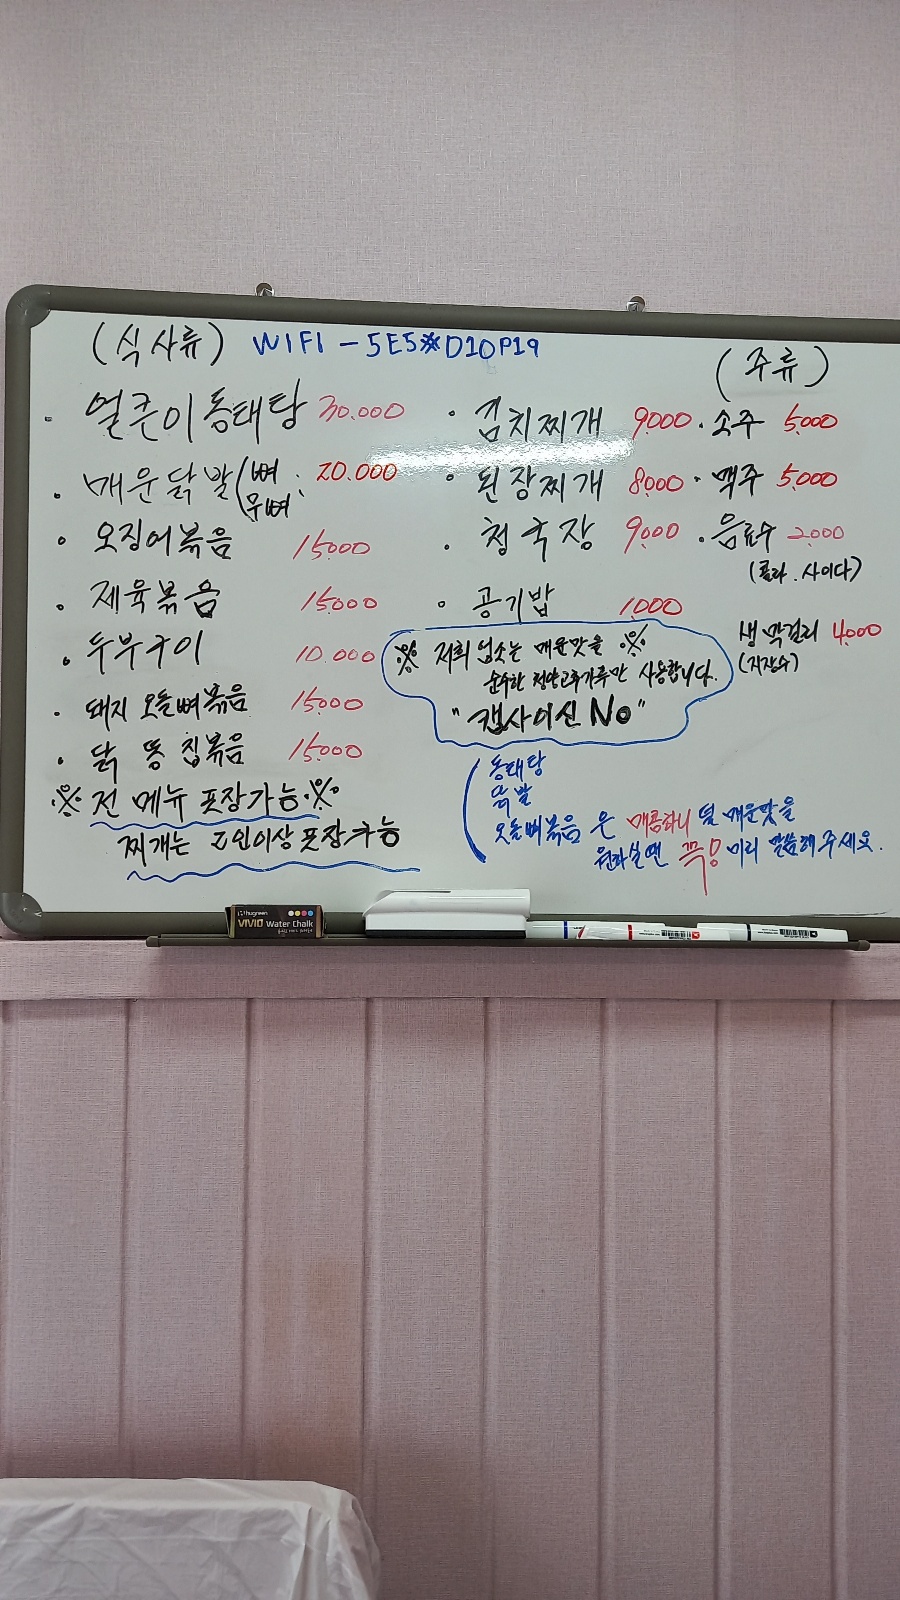 (식사류) WIFI - 5E5※D10P19
· 얼큰이 동태탕 30.000
· 매운닭발 (뼈 : 20.000
무뼈
· 오징어볶음 15000
· 제육볶음 15000
· 두부구이 10.000
· 돼지 오돌뼈볶음 15000
· 닭 똥 집볶음 15000
※ 전 메뉴 포장가능 ※
찌개는 2인이상 포장가능
· 김치찌개 9000
· 된장찌개 8000
· 청국장 9000
· 공기밥 1000
(주류)
· 소주 5000
· 맥주 5000
· 음료수 2000
(콜라. 사이다)
생막걸리 4000
(지장수)
※ 저희 업소는 매운맛을 ※
순수한 청양고추가루만 사용합니다.
"캡사이신 No"
동태탕
닭발
오돌뼈볶음 은 매콤하니 덜 매운맛을
원하실땐 꼭! 미리 말씀해 주세요.
hugreen
VIVID Water Chalk